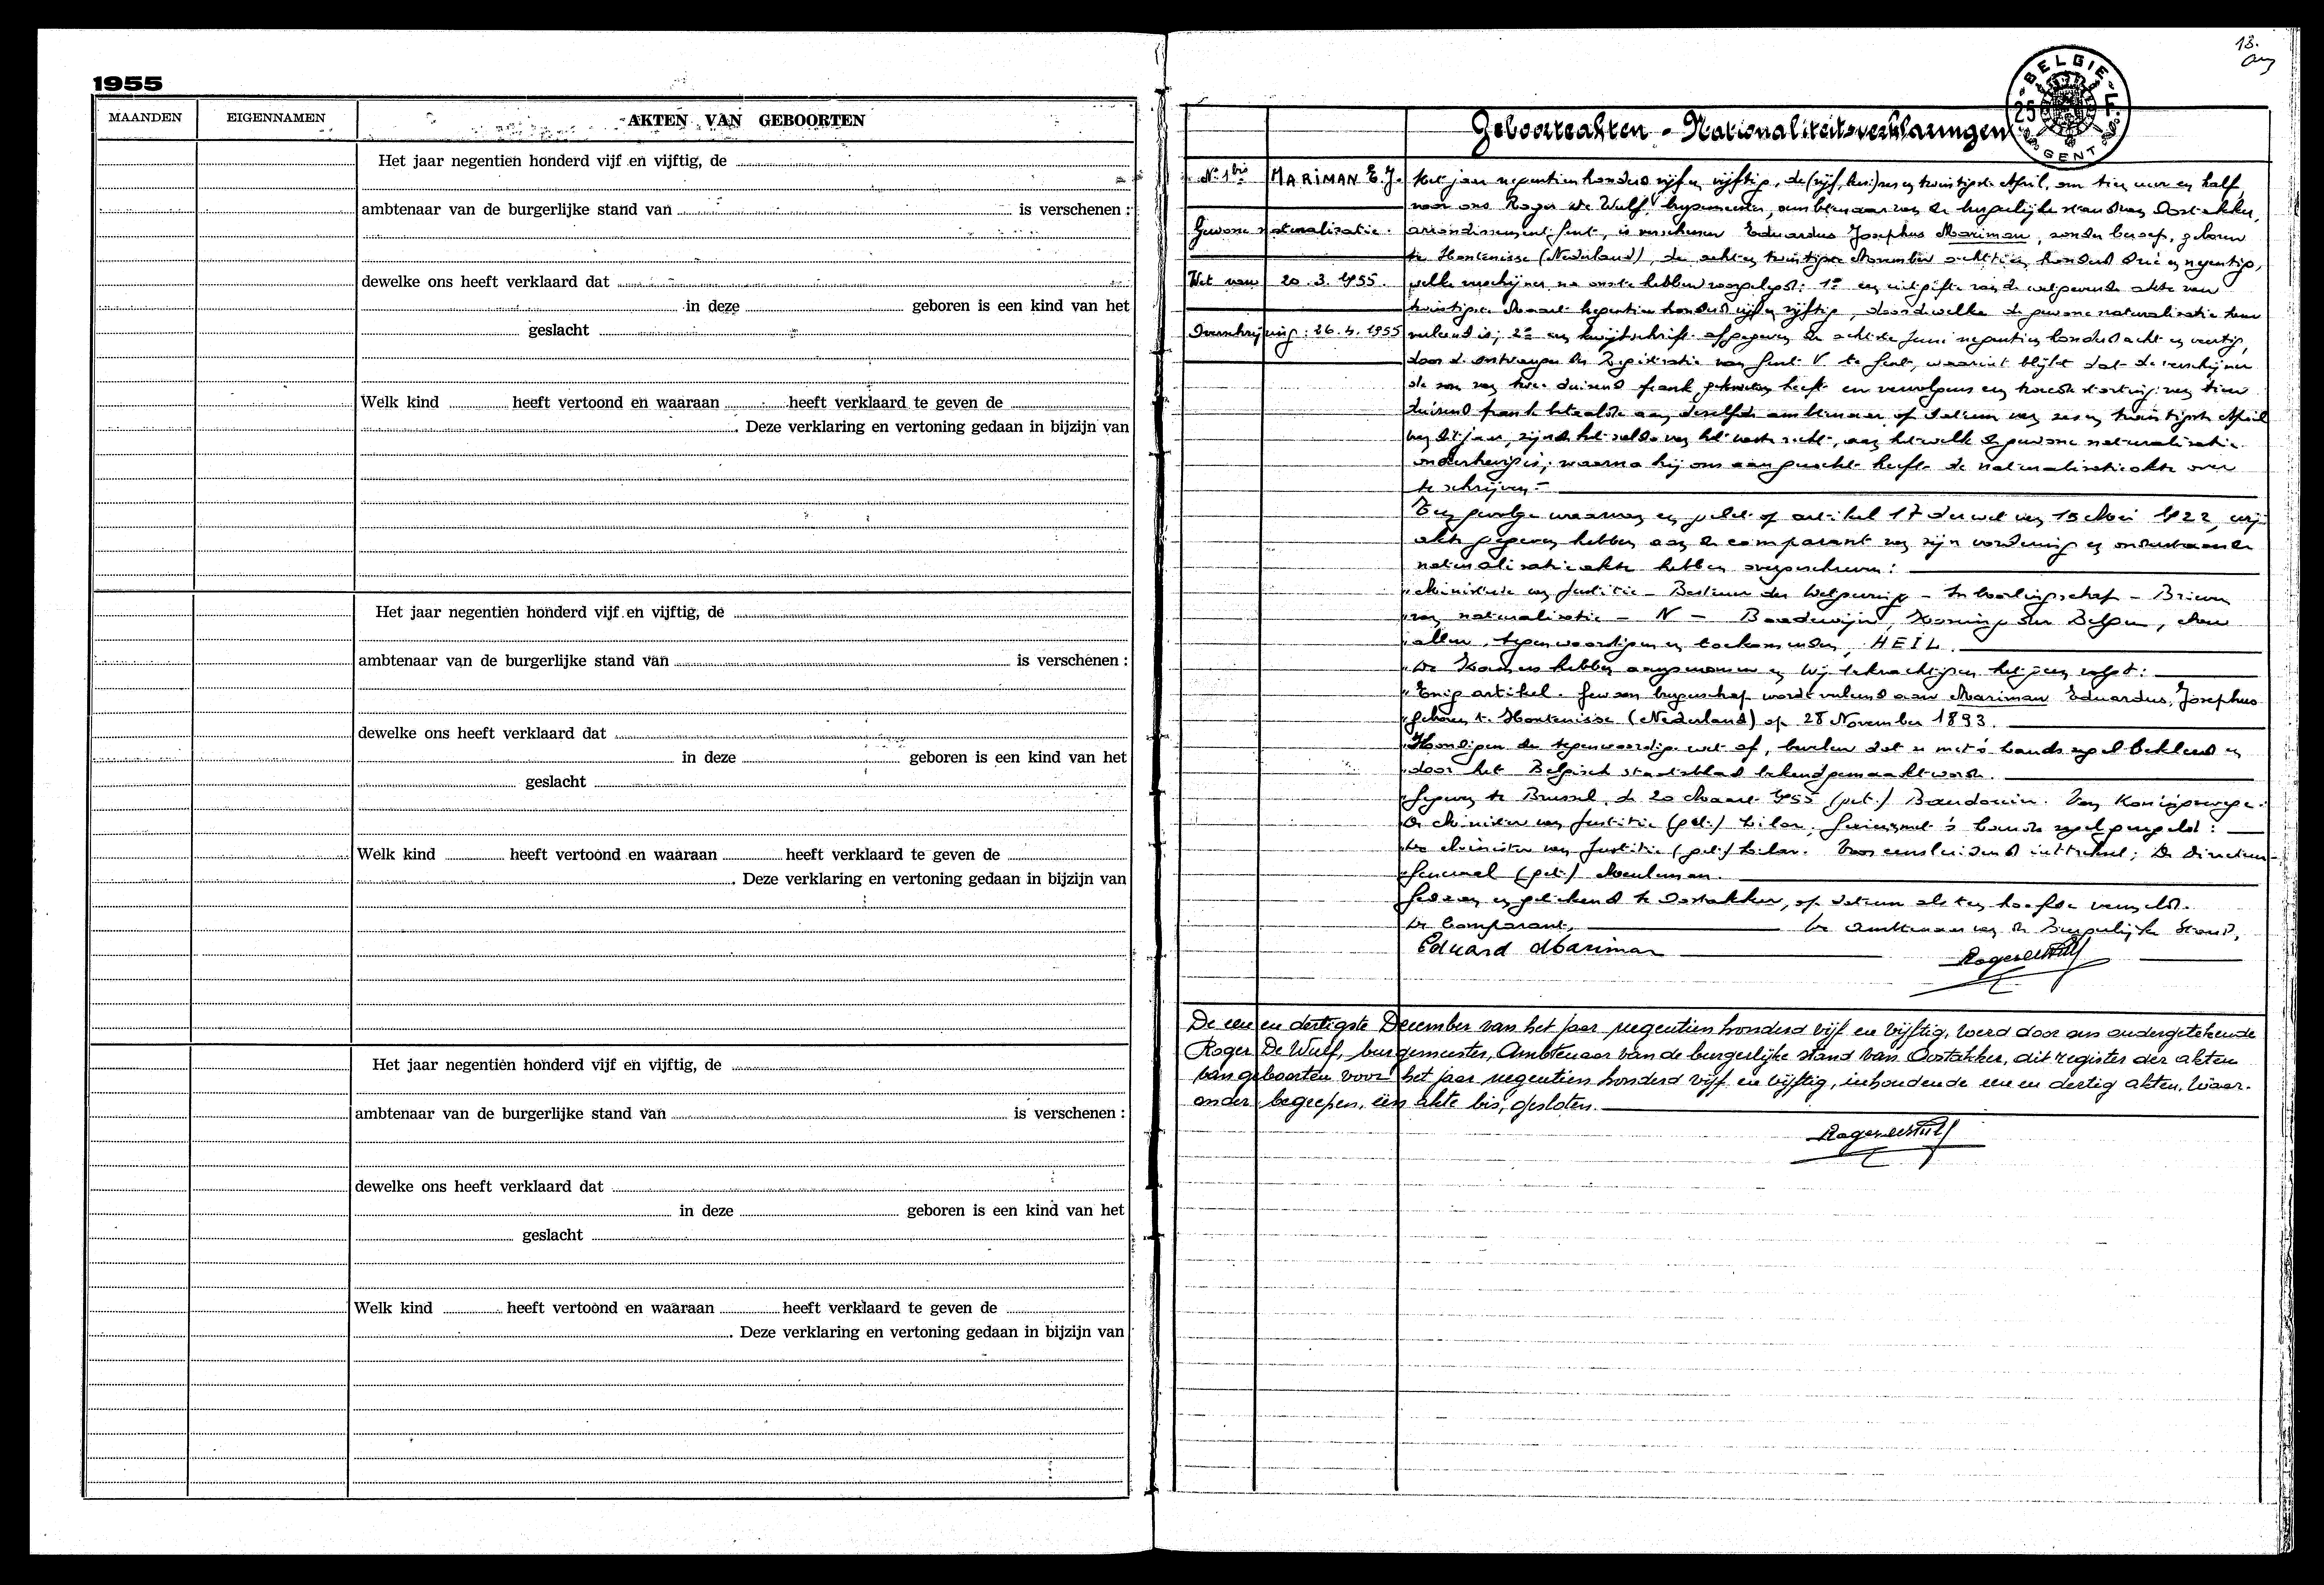 1955
MAANDEN EIGENNAMEN AKTEN VAN GEBOORTEN
Het jaar negentien honderd vijf en vijftig, de
ambtenaar van de burgerlijke stand van is verschenen :
dewelke ons heeft verklaard dat
in deze geboren is een kind van het
geslacht
Welk kind heeft vertoond en waaraan heeft verklaard te geven de
. Deze verklaring en vertoning gedaan in bijzijn van
Het jaar negentien honderd vijf en vijftig, de
ambtenaar van de burgerlijke stand van is verschenen :
dewelke ons heeft verklaard dat
in deze geboren is een kind van het
geslacht
Welk kind heeft vertoond en waaraan heeft verklaard te geven de
. Deze verklaring en vertoning gedaan in bijzijn van
Het jaar negentien honderd vijf en vijftig, de
ambtenaar van de burgerlijke stand van is verschenen :
dewelke ons heeft verklaard dat
in deze geboren is een kind van het
geslacht
Welk kind heeft vertoond en waaraan heeft verklaard te geven de
. Deze verklaring en vertoning gedaan in bijzijn van
13.
BELGIE
25 F
GENT
Geboorteakten - Nationaliteitsverklaringen
No 1bis MARIMAN E.J.
Gewone naturalisatie.
Wet van 20.3.1955.
Overschrijving: 26.4.1955
Het jaar negentien honderd vijf en vijftig, de zes en twintigste April, om tien uur en half,
voor ons Roger De Wulf, burgemeester, ambtenaar van de burgerlijke stand van Oostakker,
arrondissement Gent, is verschenen Eduardus Josephus Mariman, zonder beroep, geboren
te Hontenisse (Nederland), de acht en twintigste November achttien honderd drie en negentig,
welke verschijner na ons te hebben voorgelegd: 1e een uitgifte van de wetgevende akte van
twintigste Maart negentien honderd vijf en vijftig, door dewelke de gewone naturalisatie hem
verleend is; 2e een kwijtschrift afgegeven de achtste Juni negentien honderd acht en veertig,
door de ontvanger der Registratie van Gent V te Gent, waaruit blijkt dat de verschijner
de som van twee duizend frank gekweten heeft en vervolgens een tweede storting van tien
duizend frank betaalde aan dezelfde ambtenaar op datum van zes en twintigste April
van dit jaar, zijnde het saldo van het vaste recht, aan hetwelk de gewone naturalisatie
onderhevig is; waarna hij ons aangezocht heeft de naturalisatieakte over
te schrijven -
Ten gevolge waarvan en gelet op artikel 17 der wet van 15 Mei 1922, wij
akte gegeven hebben aan de comparant van zijn vordering en onderstaande
naturalisatieakte hebben overgeschreven:
"Ministerie van Justitie - Bestuur der Wetgeving - Inboorlingschap - Brieven
"van naturalisatie - N - Boudewijn, Koning der Belgen, Aan
"allen, tegenwoordigen en toekomenden, HEIL.
"De Kamers hebben aangenomen en Wij bekrachtigen hetgeen volgt:
"Enig artikel. Gewoon burgerschap wordt verleend aan Mariman Eduardus, Josephus
"geboren te Hontenisse (Nederland) op 28 November 1893.
"Kondigen de tegenwoordige wet af, bevelen dat zij met 's lands zegel bekleed en
"door het Belgisch staatsblad bekendgemaakt worde.
"Gegeven te Brussel, de 20 Maart 1955 (get.) Baudouin. Van Koningswege:
"De Minister van Justitie (get.) Lilar, Gezien en met 's lands zegel gezegeld:
"De Minister van Justitie (get.) Lilar. Voor eensluidend uittreksel; De Directeur-
"Generaal (get.) Meuleman.
Gedaan en getekend te Oostakker, op datum als ten hoofde vermeld.
De Comparant, De Ambtenaar van de Burgerlijke Stand,
Eduard Mariman Roger De Wulf
De een en dertigste December van het jaar negentien honderd vijf en vijftig, werd door ons ondergetekende
Roger De Wulf, burgemeester, Ambtenaar van de burgerlijke stand van Oostakker, dit register der akten
van geboorten voor het jaar negentien honderd vijf en vijftig, inhoudende een en dertig akten, waar-
onder begrepen, een akte bis, gesloten.
Roger De Wulf